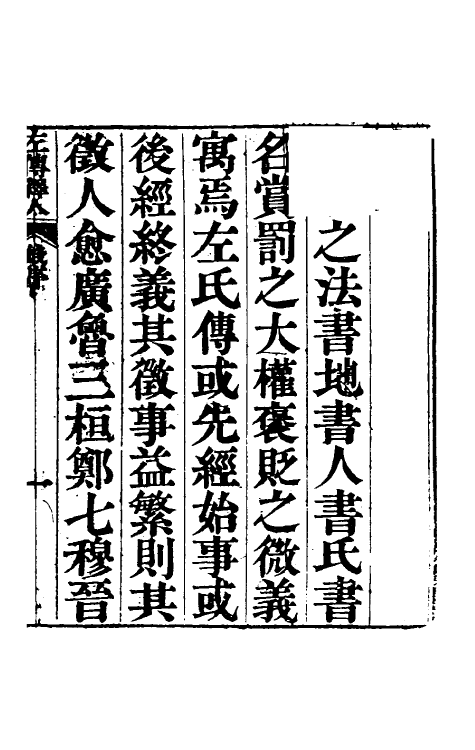 之法書地書人書氏書
名賞罰之大權褒貶之微義
寓焉左氏傳或先經始事或
後經終義其徵事益繁則其
徵人愈廣魯三桓鄭七穆晉
左傳
一